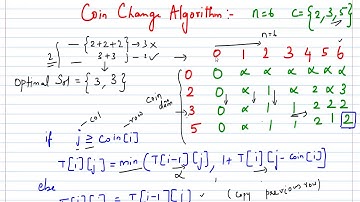 Coin Change Algorithm:- n=6 C={2,3,5}
{2+2+2} → 3x
3+3 → 2 ✓
2
n=6
Optimal Sol = {3, 3}
0 1 2 3 4 5 6
0 0 α α α α α α
2 0 α 1 α 2 α 3
3 0 α 1 1 2 2 2
5 0 α 1 1 2 1 2
coin
col row
if j ≥ coin[i]
T[i][j] = min (T[i-1][j], 1+ T[i][j-coin[i])
α
else
T[i][j] = T[i-1][j] (copy previous row)